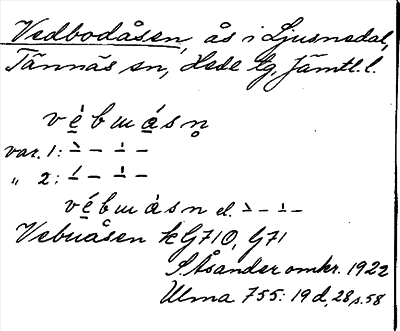 Vedbodåsen, ås i Ljusnedal,
Tännäs sn, Hede tg, Jämtl. l.
vébmásn̥
var. 1: – –
„ 2: – –
vébmásn el. – –
Vebuåsen k G710, G71
S. Åsander omkr. 1922
Ulma 755: 19 d, 28, s. 58